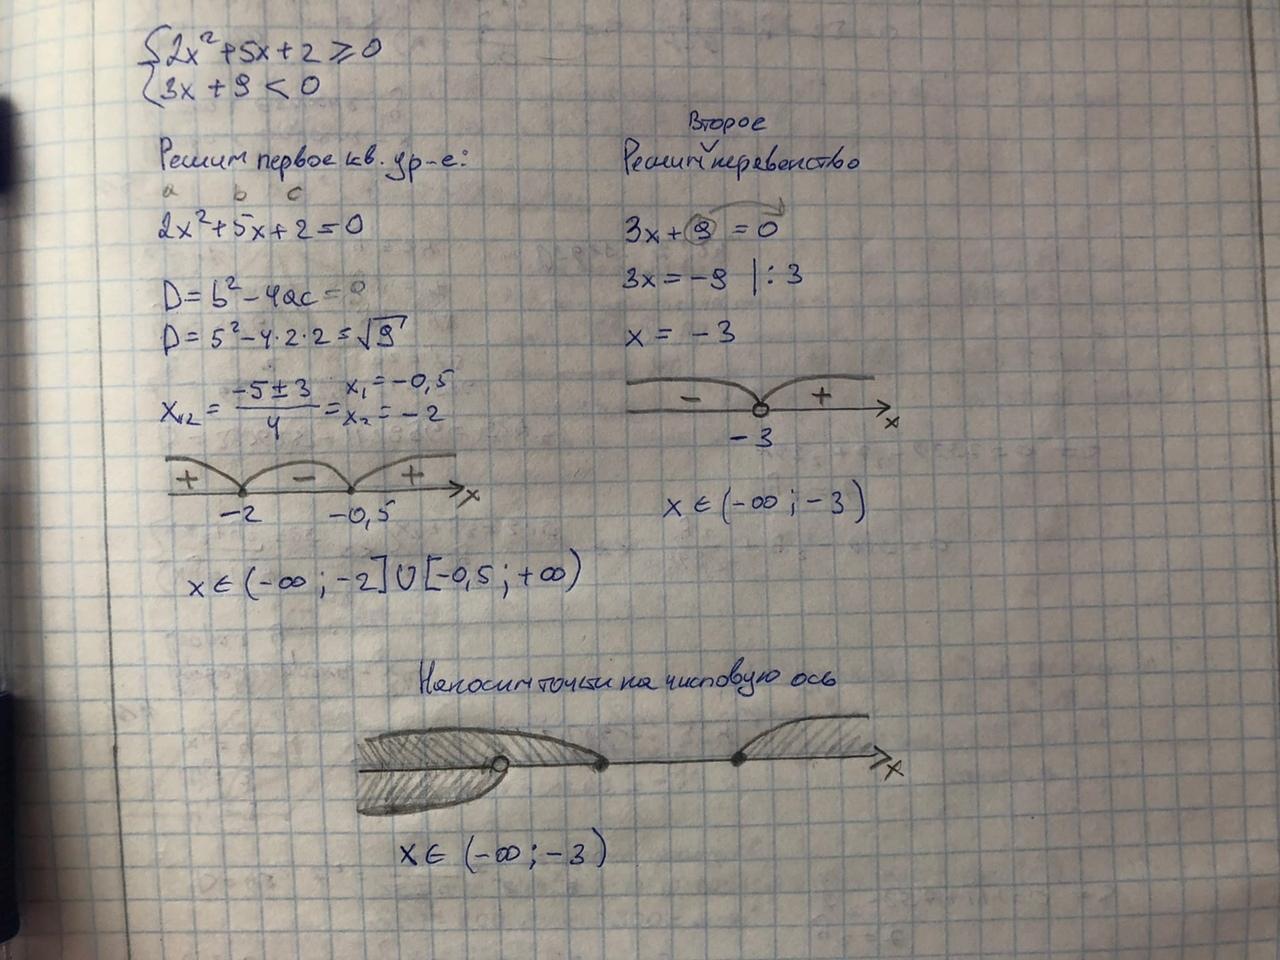 {2x² + 5x + 2 ⩾ 0
{3x + 9 < 0
Решим первое кв. ур-е:
a b c
2x² + 5x + 2 = 0
D = b² - 4ac =
D = 5² - 4·2·2 = √9
x₁,₂ = (-5 ± 3)/4 = x₁ = -0,5
x₂ = -2
+ - + x
-2 -0,5
x ∈ (-∞; -2] ∪ [-0,5; +∞)
Второе
Решим неравенство
3x + 9 = 0
3x = -9 | : 3
x = -3
- + x
-3
x ∈ (-∞; -3)
Наносим точки на числовую ось
x
x ∈ (-∞; -3)